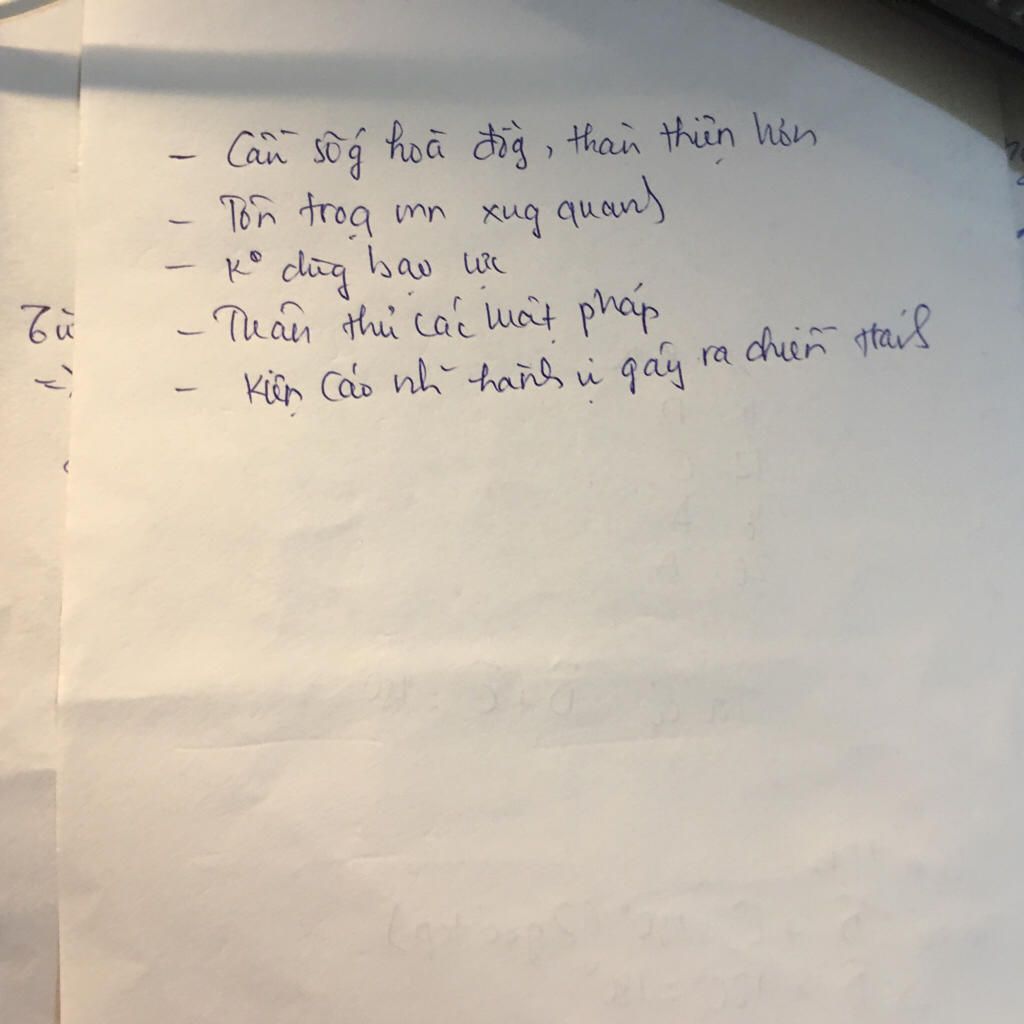 - Cần sốg hoà đồg, thân thiện hơn
- Tôn trọg mn xug quanh
- Ko dùg bạo lực
- Tuân thủ các luật pháp
- Kiện cáo nh~ hành vi gây ra chiến tranh
Từ
=>